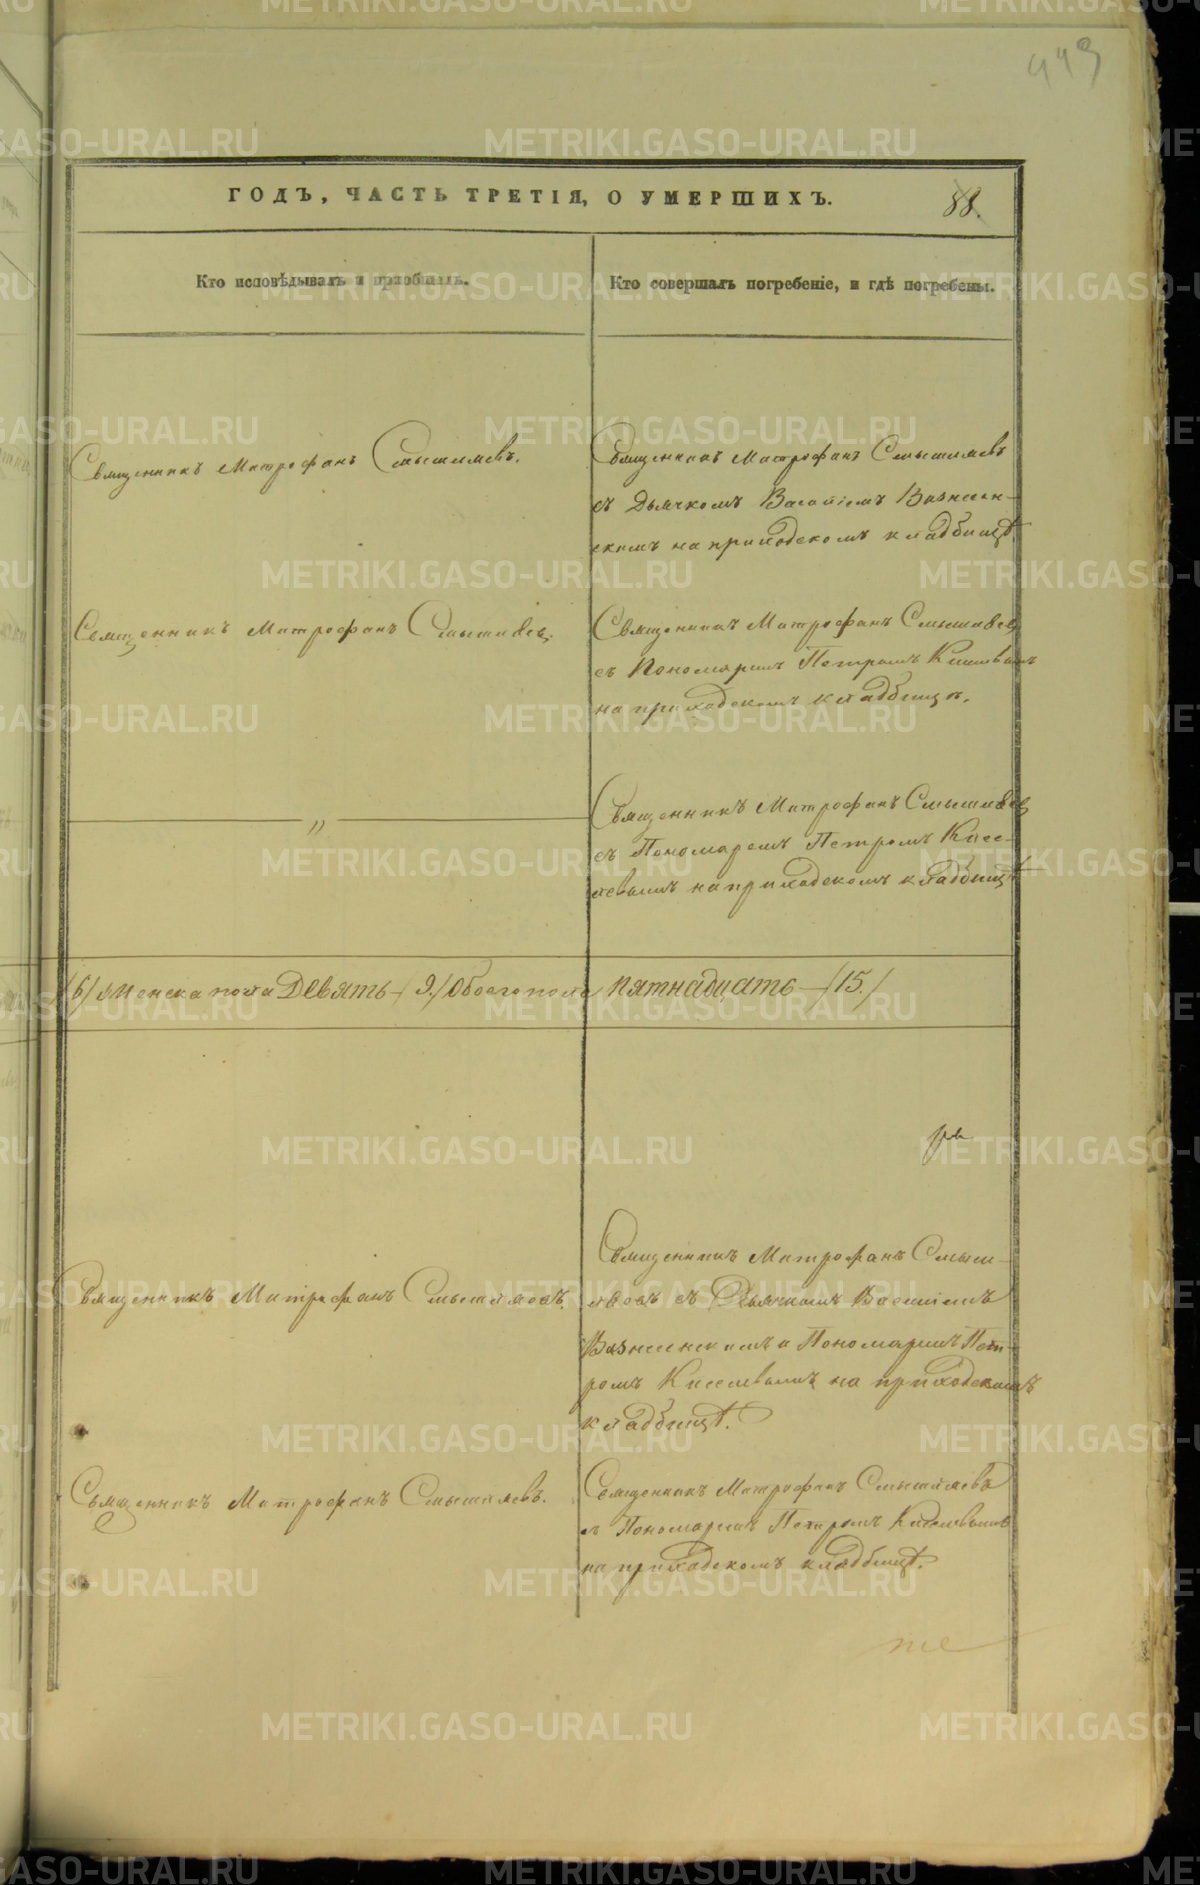 443
ГОДЪ, ЧАСТЬ ТРЕТІЯ, О УМЕРШИХЪ.
88.
Кто исповѣдывалъ и пріобщалъ.
Кто совершалъ погребеніе, и гдѣ погребены.
Священникъ Митрофанъ Смышляевъ.
Священникъ Митрофанъ Смышляевъ
съ Дьячкомъ Василіемъ Вознесен-
скимъ на приходскомъ кладбищѣ.
Священникъ Митрофанъ Смышляевъ.
Священникъ Митрофанъ Смышляевъ
съ Пономаремъ Петромъ Киселевымъ
на приходскомъ кладбищѣ.
— „ —
Священникъ Митрофанъ Смышляевъ
съ Пономаремъ Петромъ Кисе-
левымъ на приходскомъ кладбищѣ
/6/ Женска пола Девять — /9./ Обоего пола Пятнадцать — /15./
Священникъ Митрофанъ Смышляевъ.
Священникъ Митрофанъ Смыш-
ляевъ съ Дьячкомъ Василіемъ
Вознесенскимъ и Пономаремъ Пет-
ромъ Киселевымъ на приходскомъ
кладбищѣ.
Священникъ Митрофанъ Смышляевъ.
Священникъ Митрофанъ Смышляевъ
съ Пономаремъ Петромъ Киселевымъ
на приходскомъ кладбищѣ.
METRIKI.GASO-URAL.RU